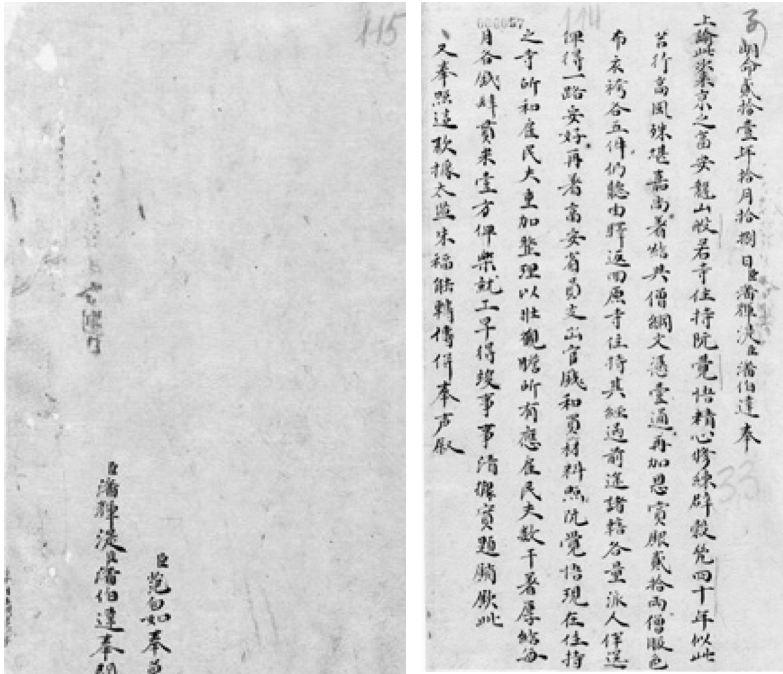 114
明命貳拾壹年拾月拾捌日臣潘輝湜臣潘伯達奉
上諭此次來京之富安龍山般若寺住持阮覺悟精心修練辟穀四十年似此
苦行高風殊堪嘉尚著給與僧綱文憑壹通再加恩賞銀貳拾兩僧服色
布衣袴各五件仍聽由驛返回原寺住持其經過前途諸轄各量派人伴送
俾得一路妥好再著富安省員支出官錢和買材料照阮覺悟現在住持
之寺所和雇民夫重加整理以壯觀瞻所有應雇民夫數干著厚給每
月各錢肆貫米壹方俾樂就工早得竣事事清據實題銷欽此
又奉照這款據太監朱福能轉傳併奉声叙
33
115
臣范白如奉
臣潘輝湜臣潘伯達奉閱